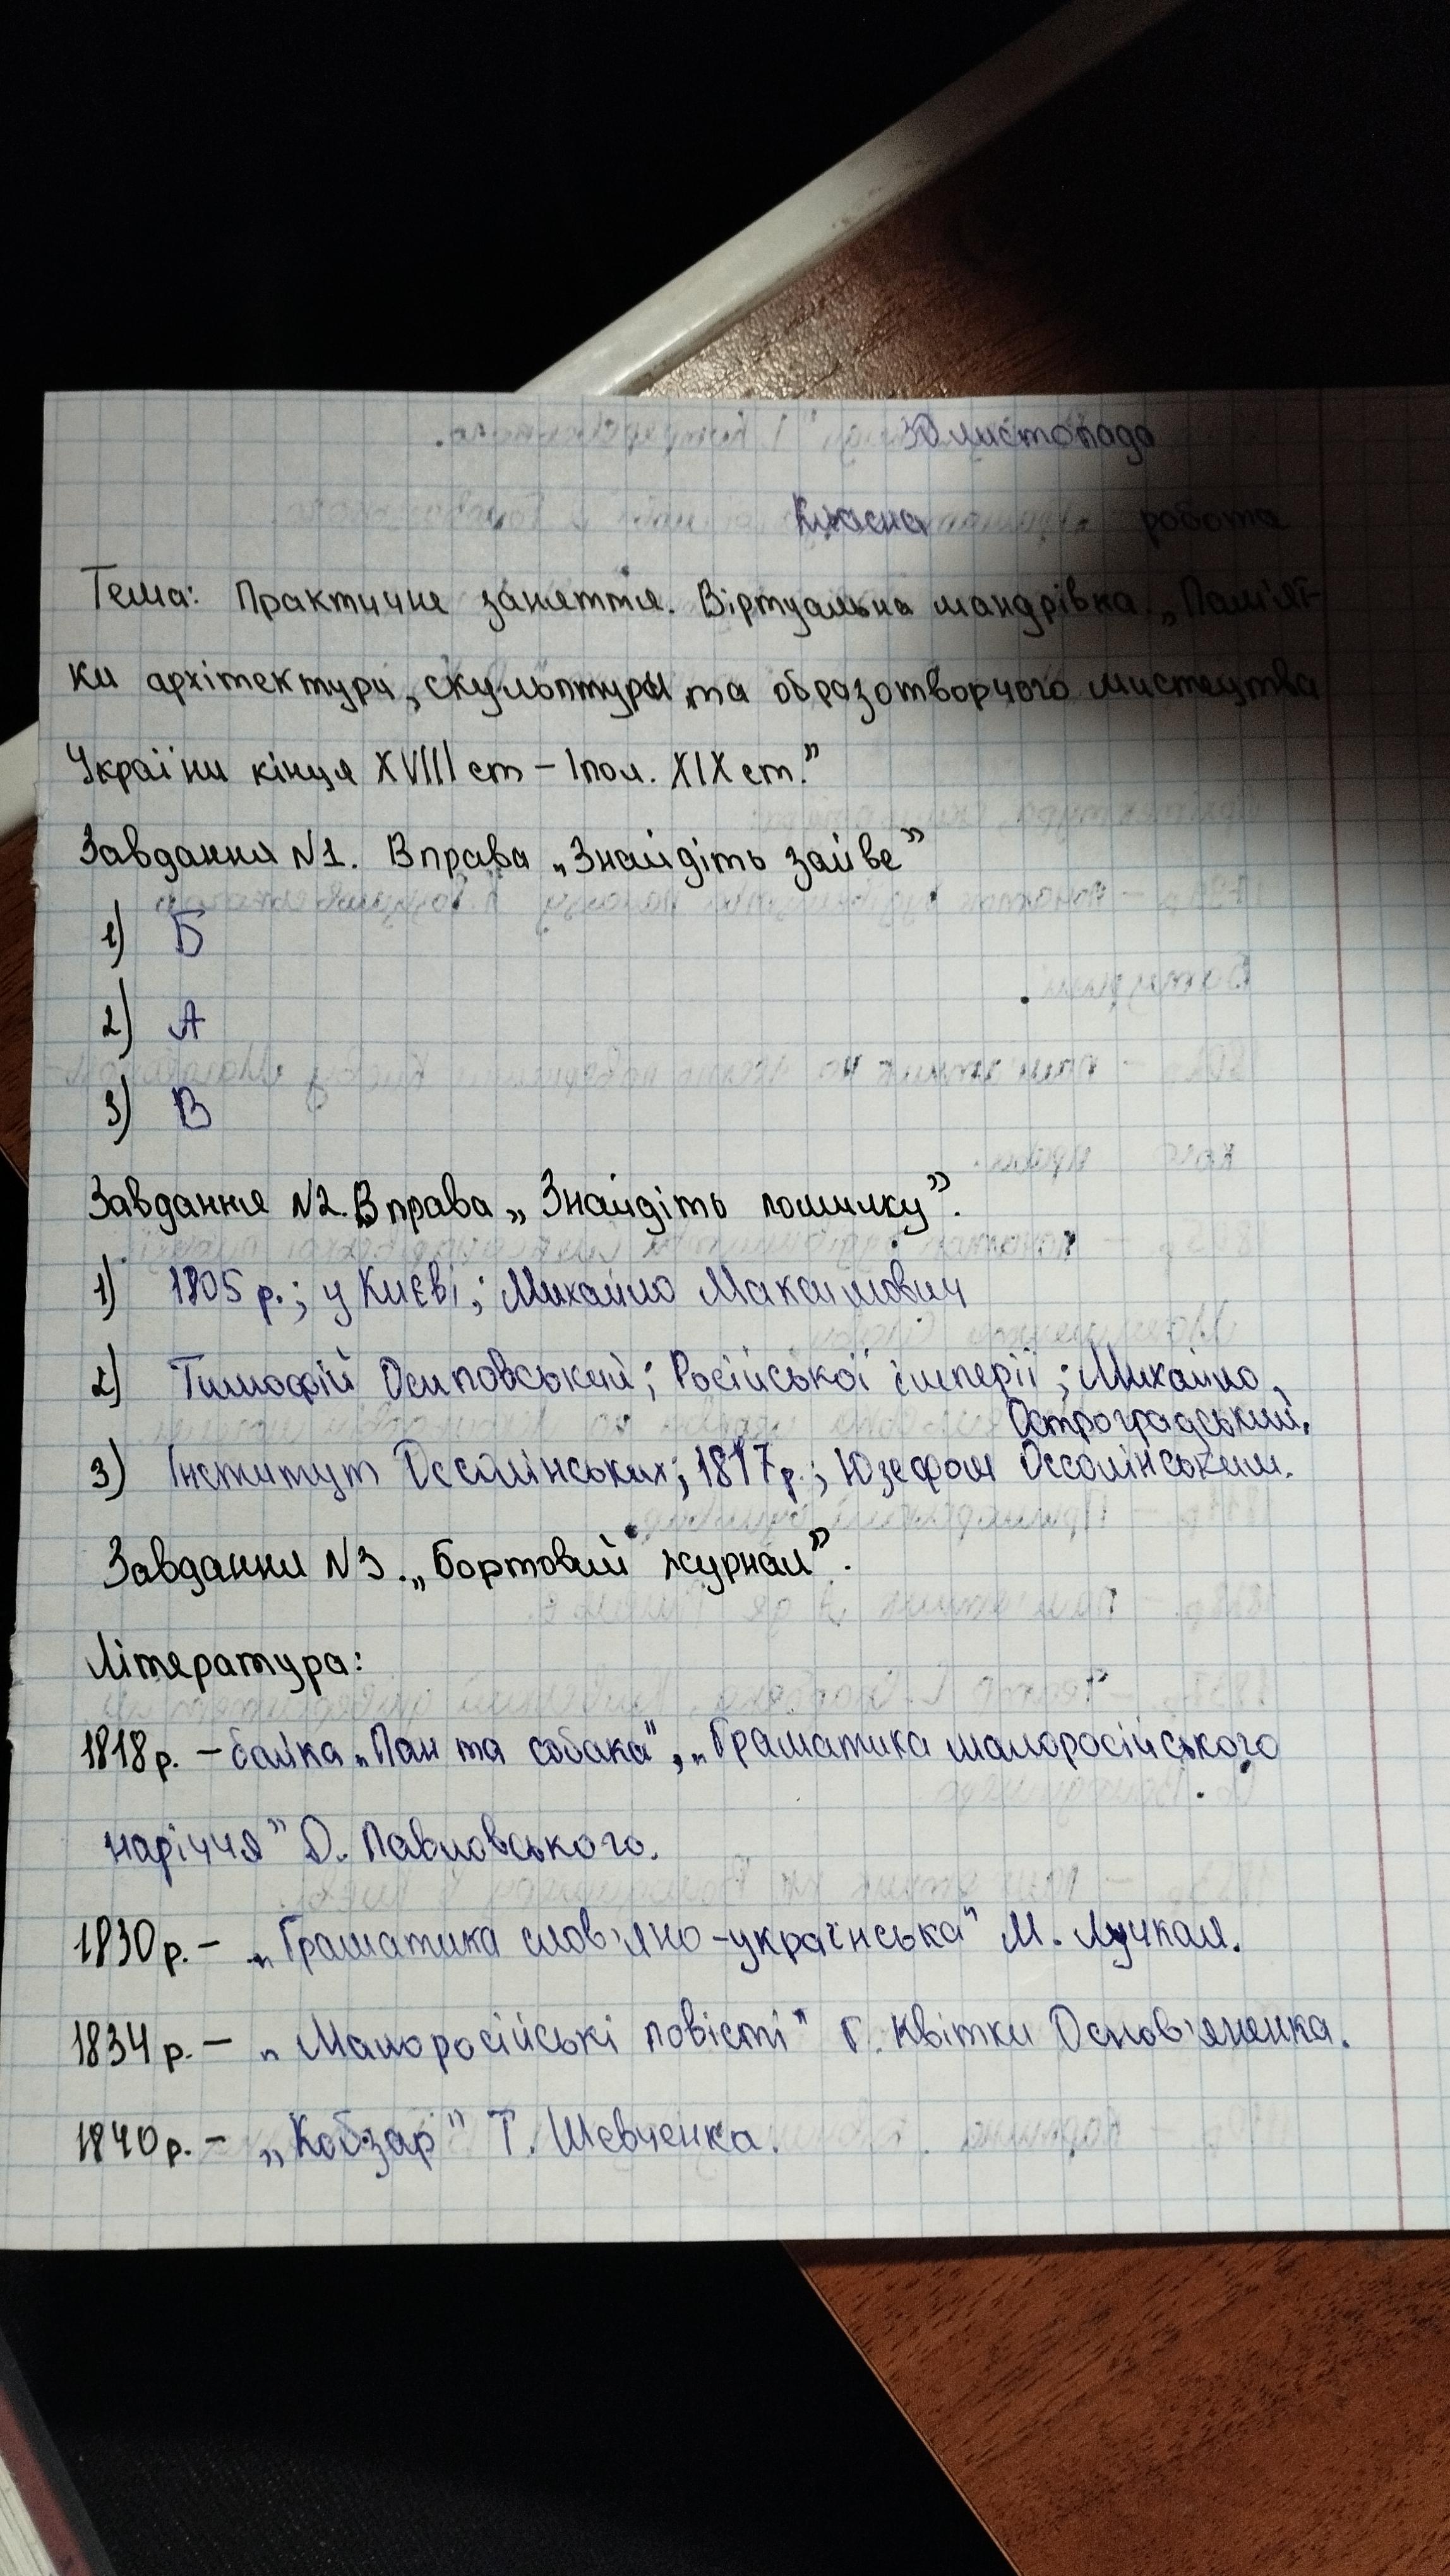 30 листопада
Класна робота
Тема: Практичне заняття. Віртуальна мандрівка. „Пам'ят-
ки архітектури, скульптури та образотворчого мистецтва
України кінця XVIII ст – I пол. XIX ст."
Завдання №1. Вправа „Знайдіть зайве"
1) Б
2) А
3) В
Завдання №2. Вправа „Знайдіть помилку".
1) 1805 р.; у Києві; Михайло Максимович
2) Тимофій Осиповський; Російської імперії; Михайло
Остроградський.
3) Інститут Оссолінських; 1817 р.; Юзефом Оссолінським.
Завдання №3. „Бортовий журнал".
Література:
1818 р. – байка „Пан та собака", „Граматика малоросійського
наріччя" О. Павловського.
1830 р. – „Граматика слов'яно-українська" М. Лучкая.
1834 р. – „Малоросійські повісті" Г. Квітки Основ'яненка.
1840 р. – „Кобзар" Т. Шевченка.